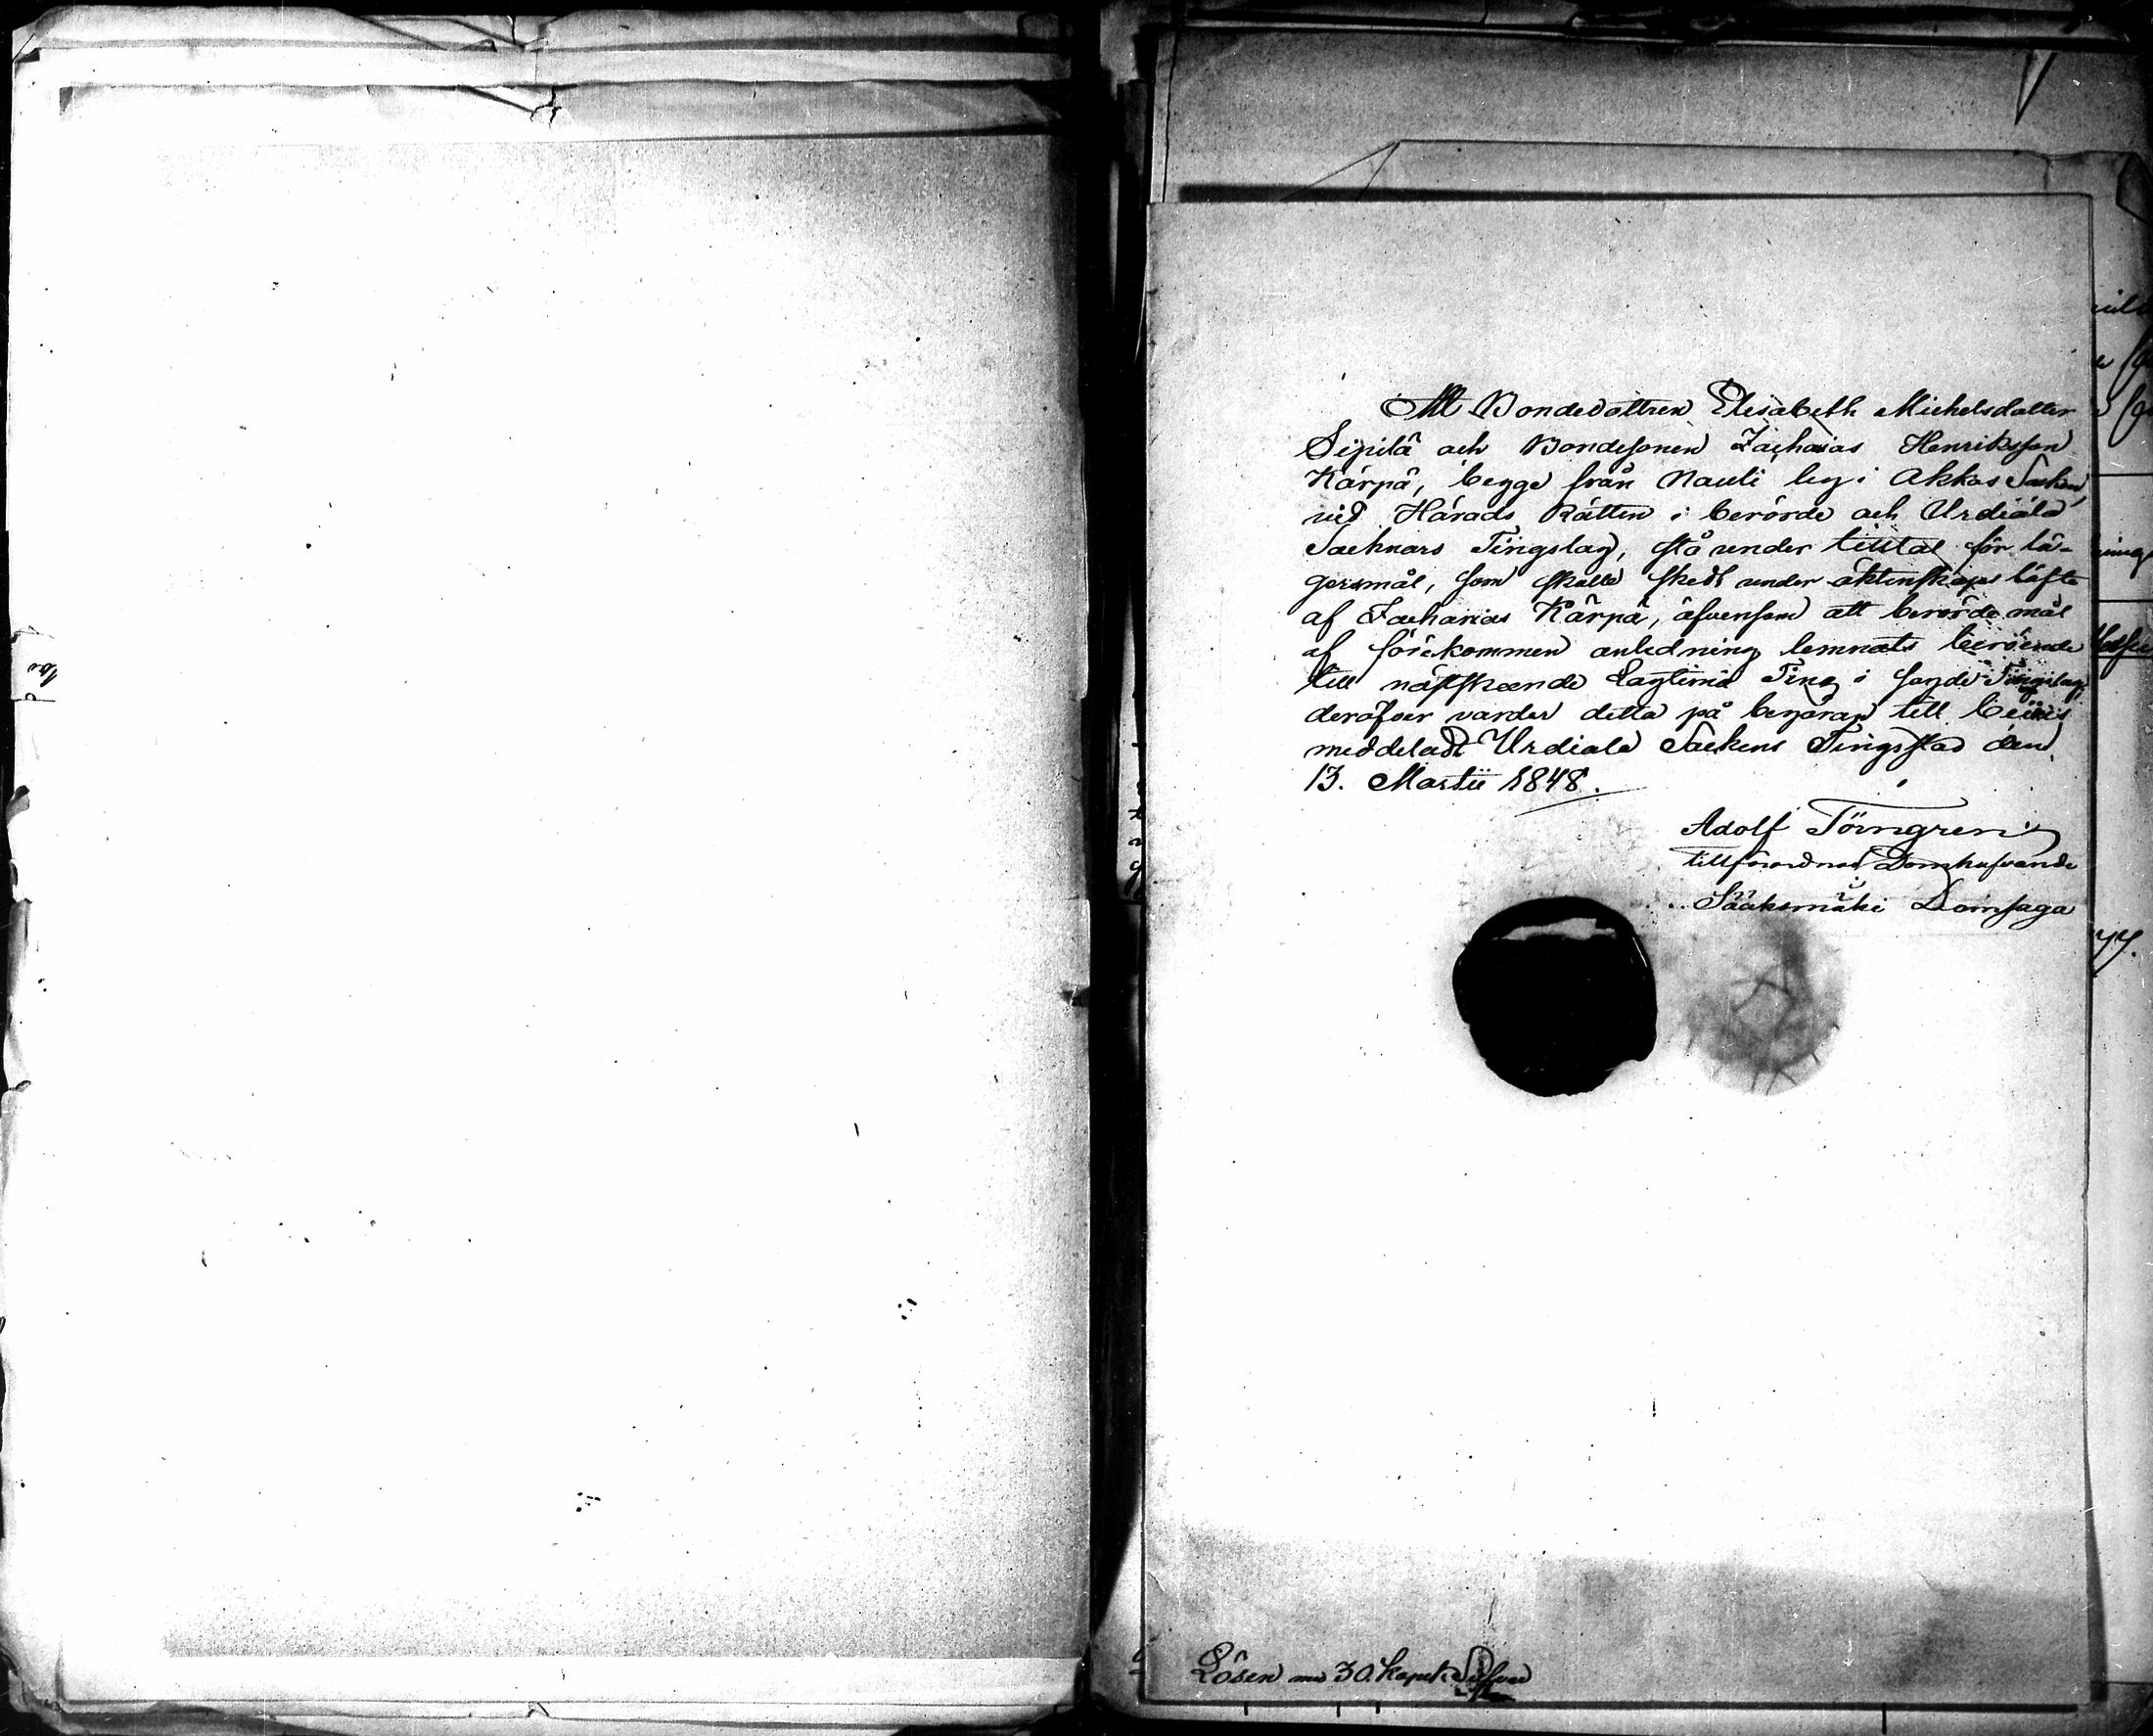 Att Bondedottren Elisabeth Michelsdotter
Sipilä och Bondesonen Zacharias Henriksson
Kärpä, begge från Nauli by i Akkas Socken,
vid Härads Rätten i berörde och Urdiala
Socknars Tingslag, stå under tilltal för lä-
gersmål, som skulle skedt under äktenskaps löfte
af Zacharias Kärpä, äfvensom att berörde mål
af förekommen anledning lemnats beroende
till nästskeende Lagtima Ting i sagde Tingslag,
deröfver varder detta på begäran till bevis
meddeladt Urdiala Sockens Tingsstad den
13. Martii 1848.
Adolf Törngren
tillförordnad Domhafvande
i
Sääksmäki Domsaga
Lösen med 30. kopek Silfver